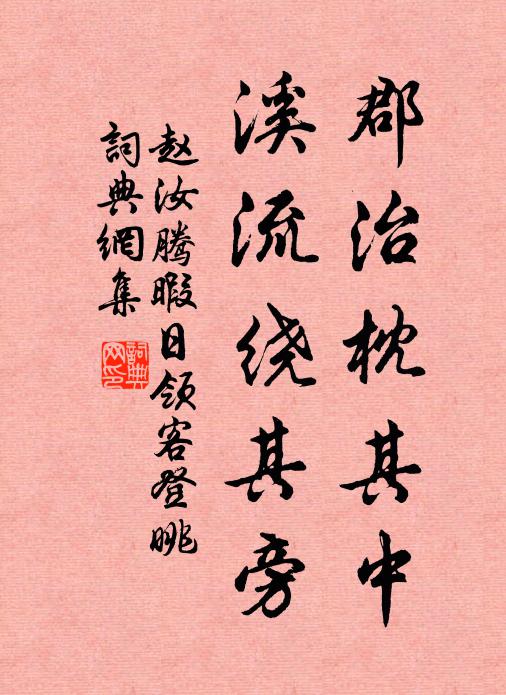 郡治枕其中
溪流绕其旁
赵汝腾暇日领客登眺
詞典網集
詞典网印